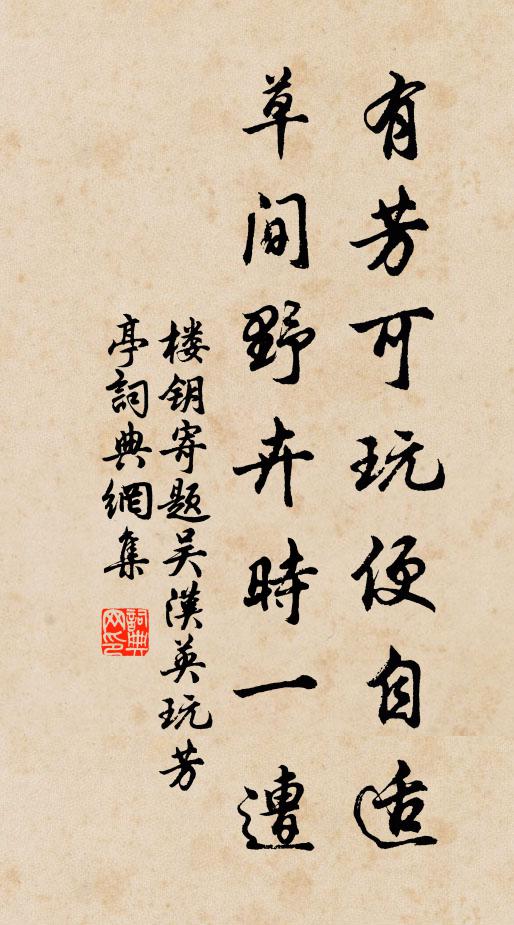 有芳可玩便自适
草间野卉時一遭
楼钥寄题吴漢英玩芳
亭詞典網集
詞典
网印